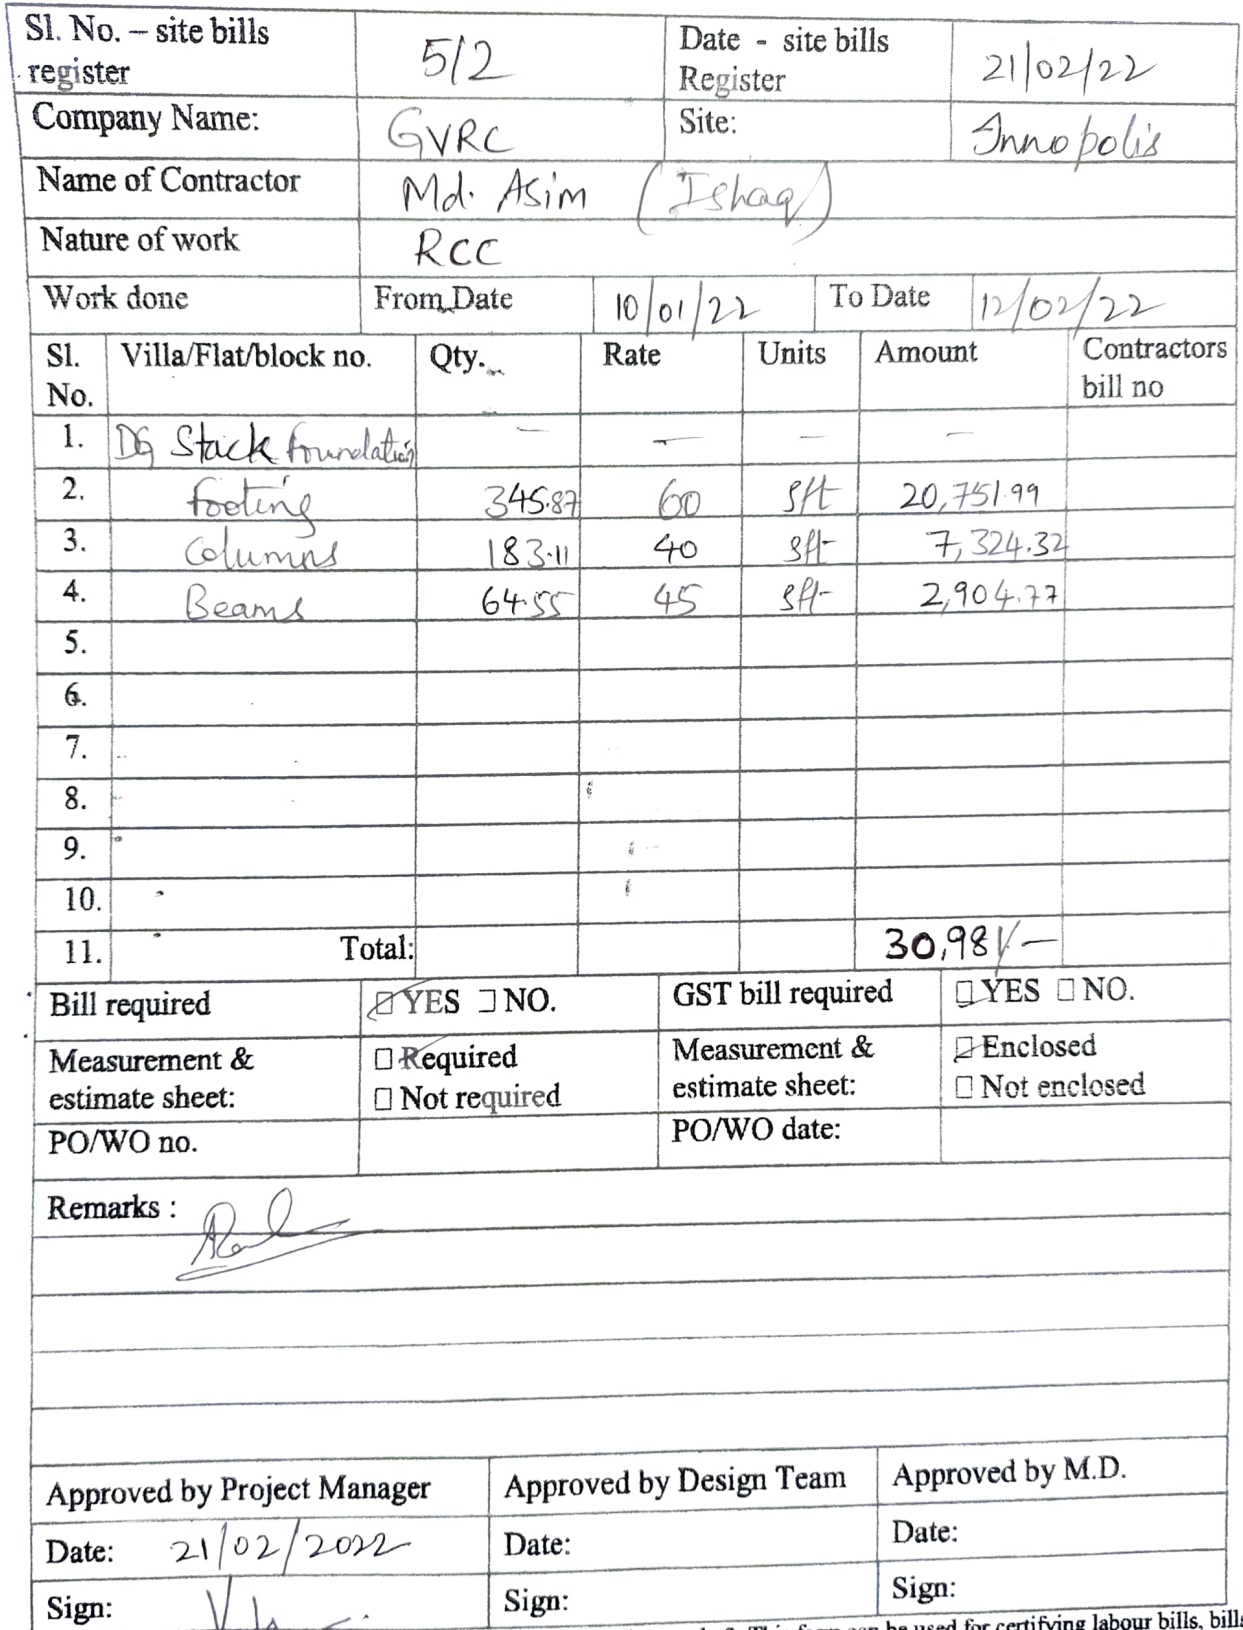 Sl. No. – site bills register 5/2 Date - site bills Register 21/02/22
Company Name: GVRC Site: Innopolis
Name of Contractor Md. Asim (Ishaq)
Nature of work RCC
Work done From Date 10/01/22 To Date 12/02/22
Sl. No. Villa/Flat/block no. Qty. Rate Units Amount Contractors bill no
1. DG Stack foundation — — — —
2. footing 345.87 60 sft 20,751.99
3. Columns 183.11 40 sft 7,324.32
4. Beams 64.55 45 sft 2,904.77
5.
6.
7.
8.
9.
10.
11. Total: 30,981/-
Bill required YES NO. GST bill required YES NO.
Measurement & estimate sheet: Required Not required Measurement & estimate sheet: Enclosed Not enclosed
PO/WO no. PO/WO date:
Remarks :
Approved by Project Manager Approved by Design Team Approved by M.D.
Date: 21/02/2022 Date: Date:
Sign: Sign: Sign:
This form can be used for certifying labour bills, bills